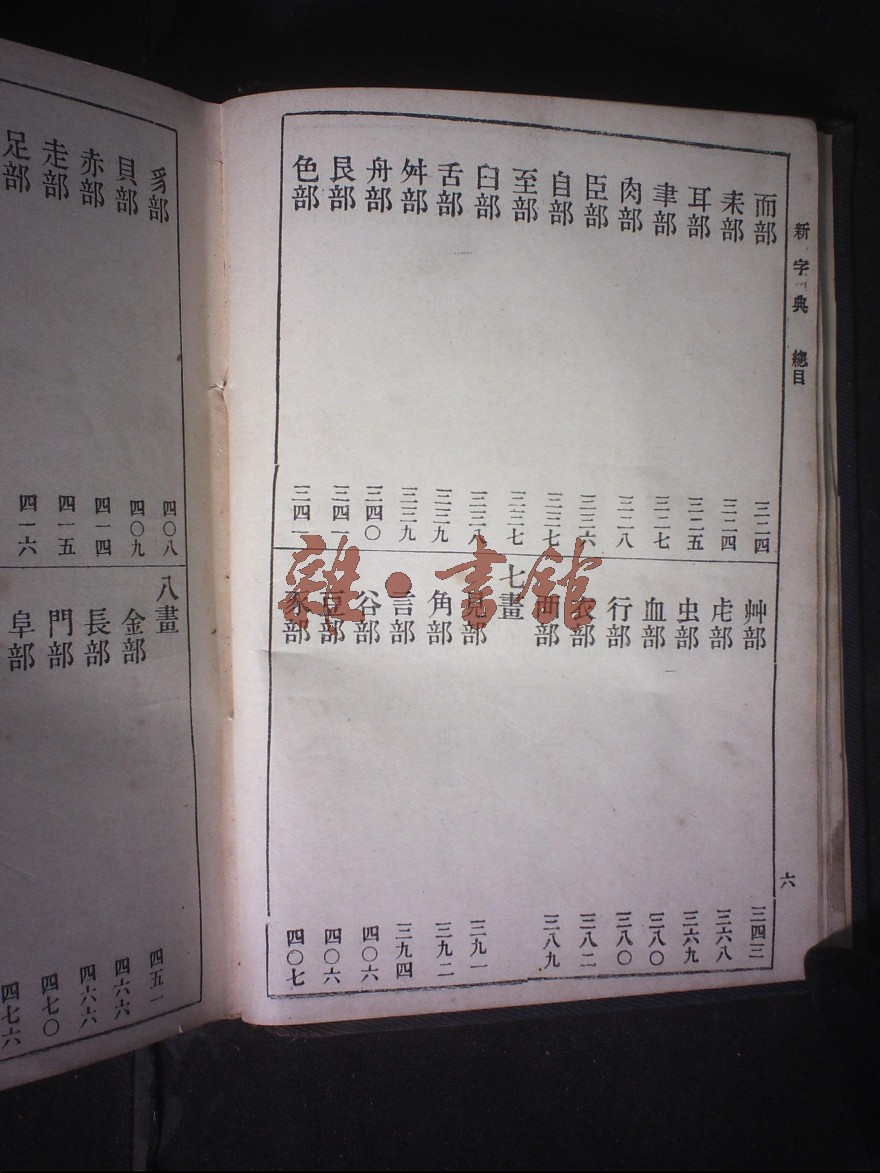 新字典 總目
六
而部 三二四
耒部 三二四
耳部 三二五
聿部 三二七
肉部 三二八
臣部 三三六
自部 三三七
至部 三三七
臼部 三三八
舌部 三三九
舛部 三三九
舟部 三四〇
艮部 三四一
色部 三四二
艸部 三四三
虍部 三六八
虫部 三六九
血部 三八〇
行部 三八〇
衣部 三八二
襾部 三八九
七畫
見部 三九一
角部 三九二
言部 三九四
谷部 四〇六
豆部 四〇六
豕部 四〇七
豸部 四〇八
貝部 四〇九
赤部 四一四
走部 四一五
足部 四一六
八畫
金部 四五一
長部 四六六
門部 四六六
阜部 四七〇
四七六
雜·書館